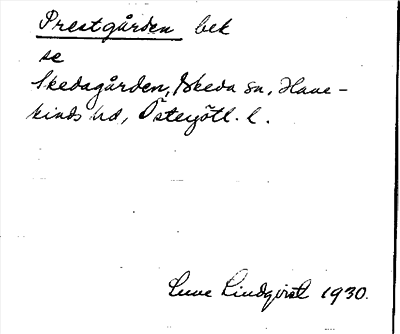 Prestgården bek
se
Skedagården, Skeda sn, Hane-
kinds hd, Östergötl. l.
Sune Lindqvist 1930.